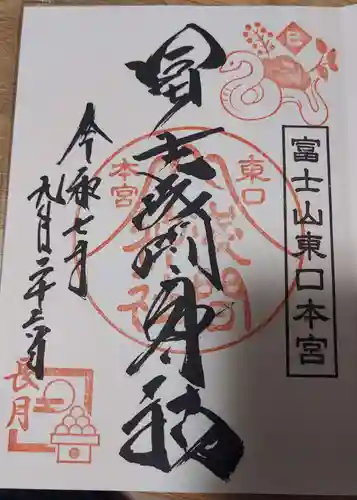 巳
富士山東口本宮
冨士浅間神社
東口
本宮
淺間
神社
令和七年
九月二十三日
長月